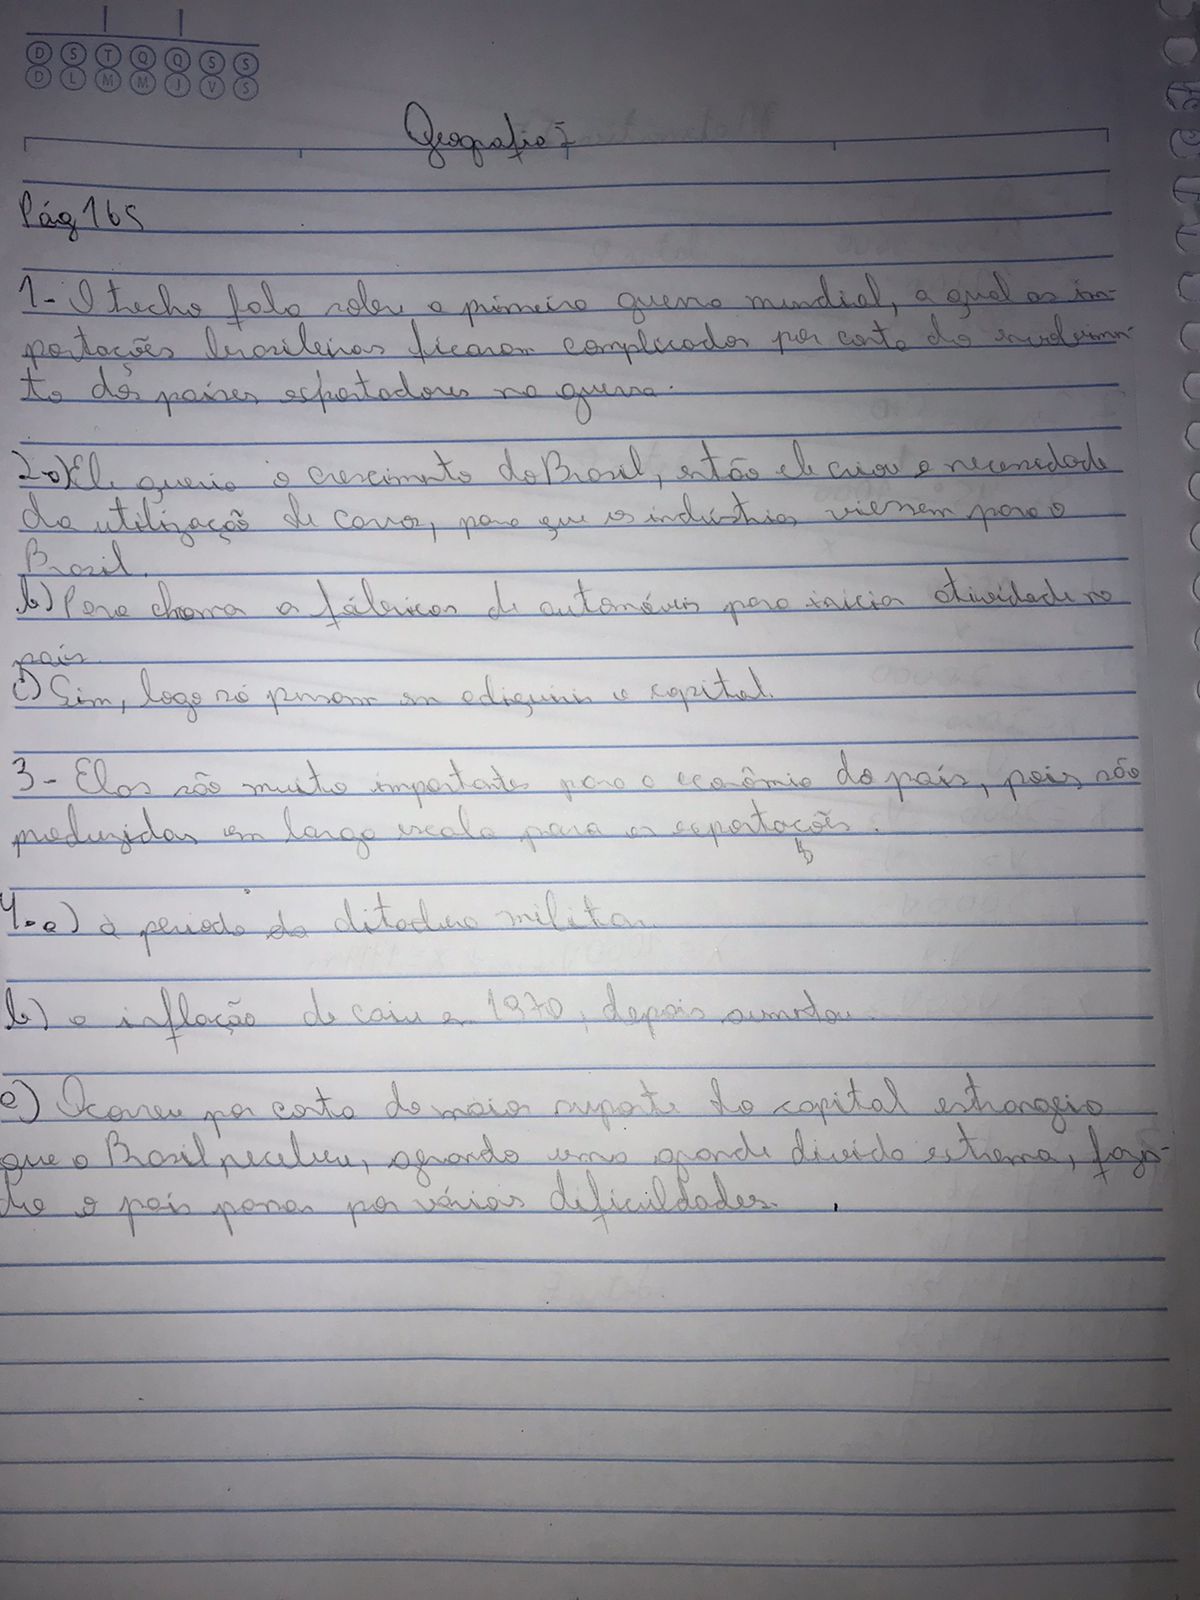 D S T Q Q S S
D L M M J V S
Geografia 7
Pág 165
1- O trecho fala sobre a primeira guerra mundial, a qual as im-
portações brasileiras ficaram complicadas por conta do envolvimen-
to dos países exportadores na guerra.
2-a) Ele queria o crescimento do Brasil, então ele criou a necessidade
da utilização de carros, para que as indústrias viessem para o
Brasil.
b) Para chama a fábricas de automóveis para inicia atividade no
país.
c) Sim, logo só pensam em adiquirir o capital.
3- Elas são muito importantes para a econômia do país, pois são
produzidas em larga escala para as exportações.
4-a) o periodo da ditadura militar.
b) a inflação de caiu em 1970, depois aumentou.
c) Ocorreu por conta do maior suporte do capital estrangeio
que o Brasil recebeu, gerando uma grande divida externa, fazen-
do o país passar por várias deficuldades.